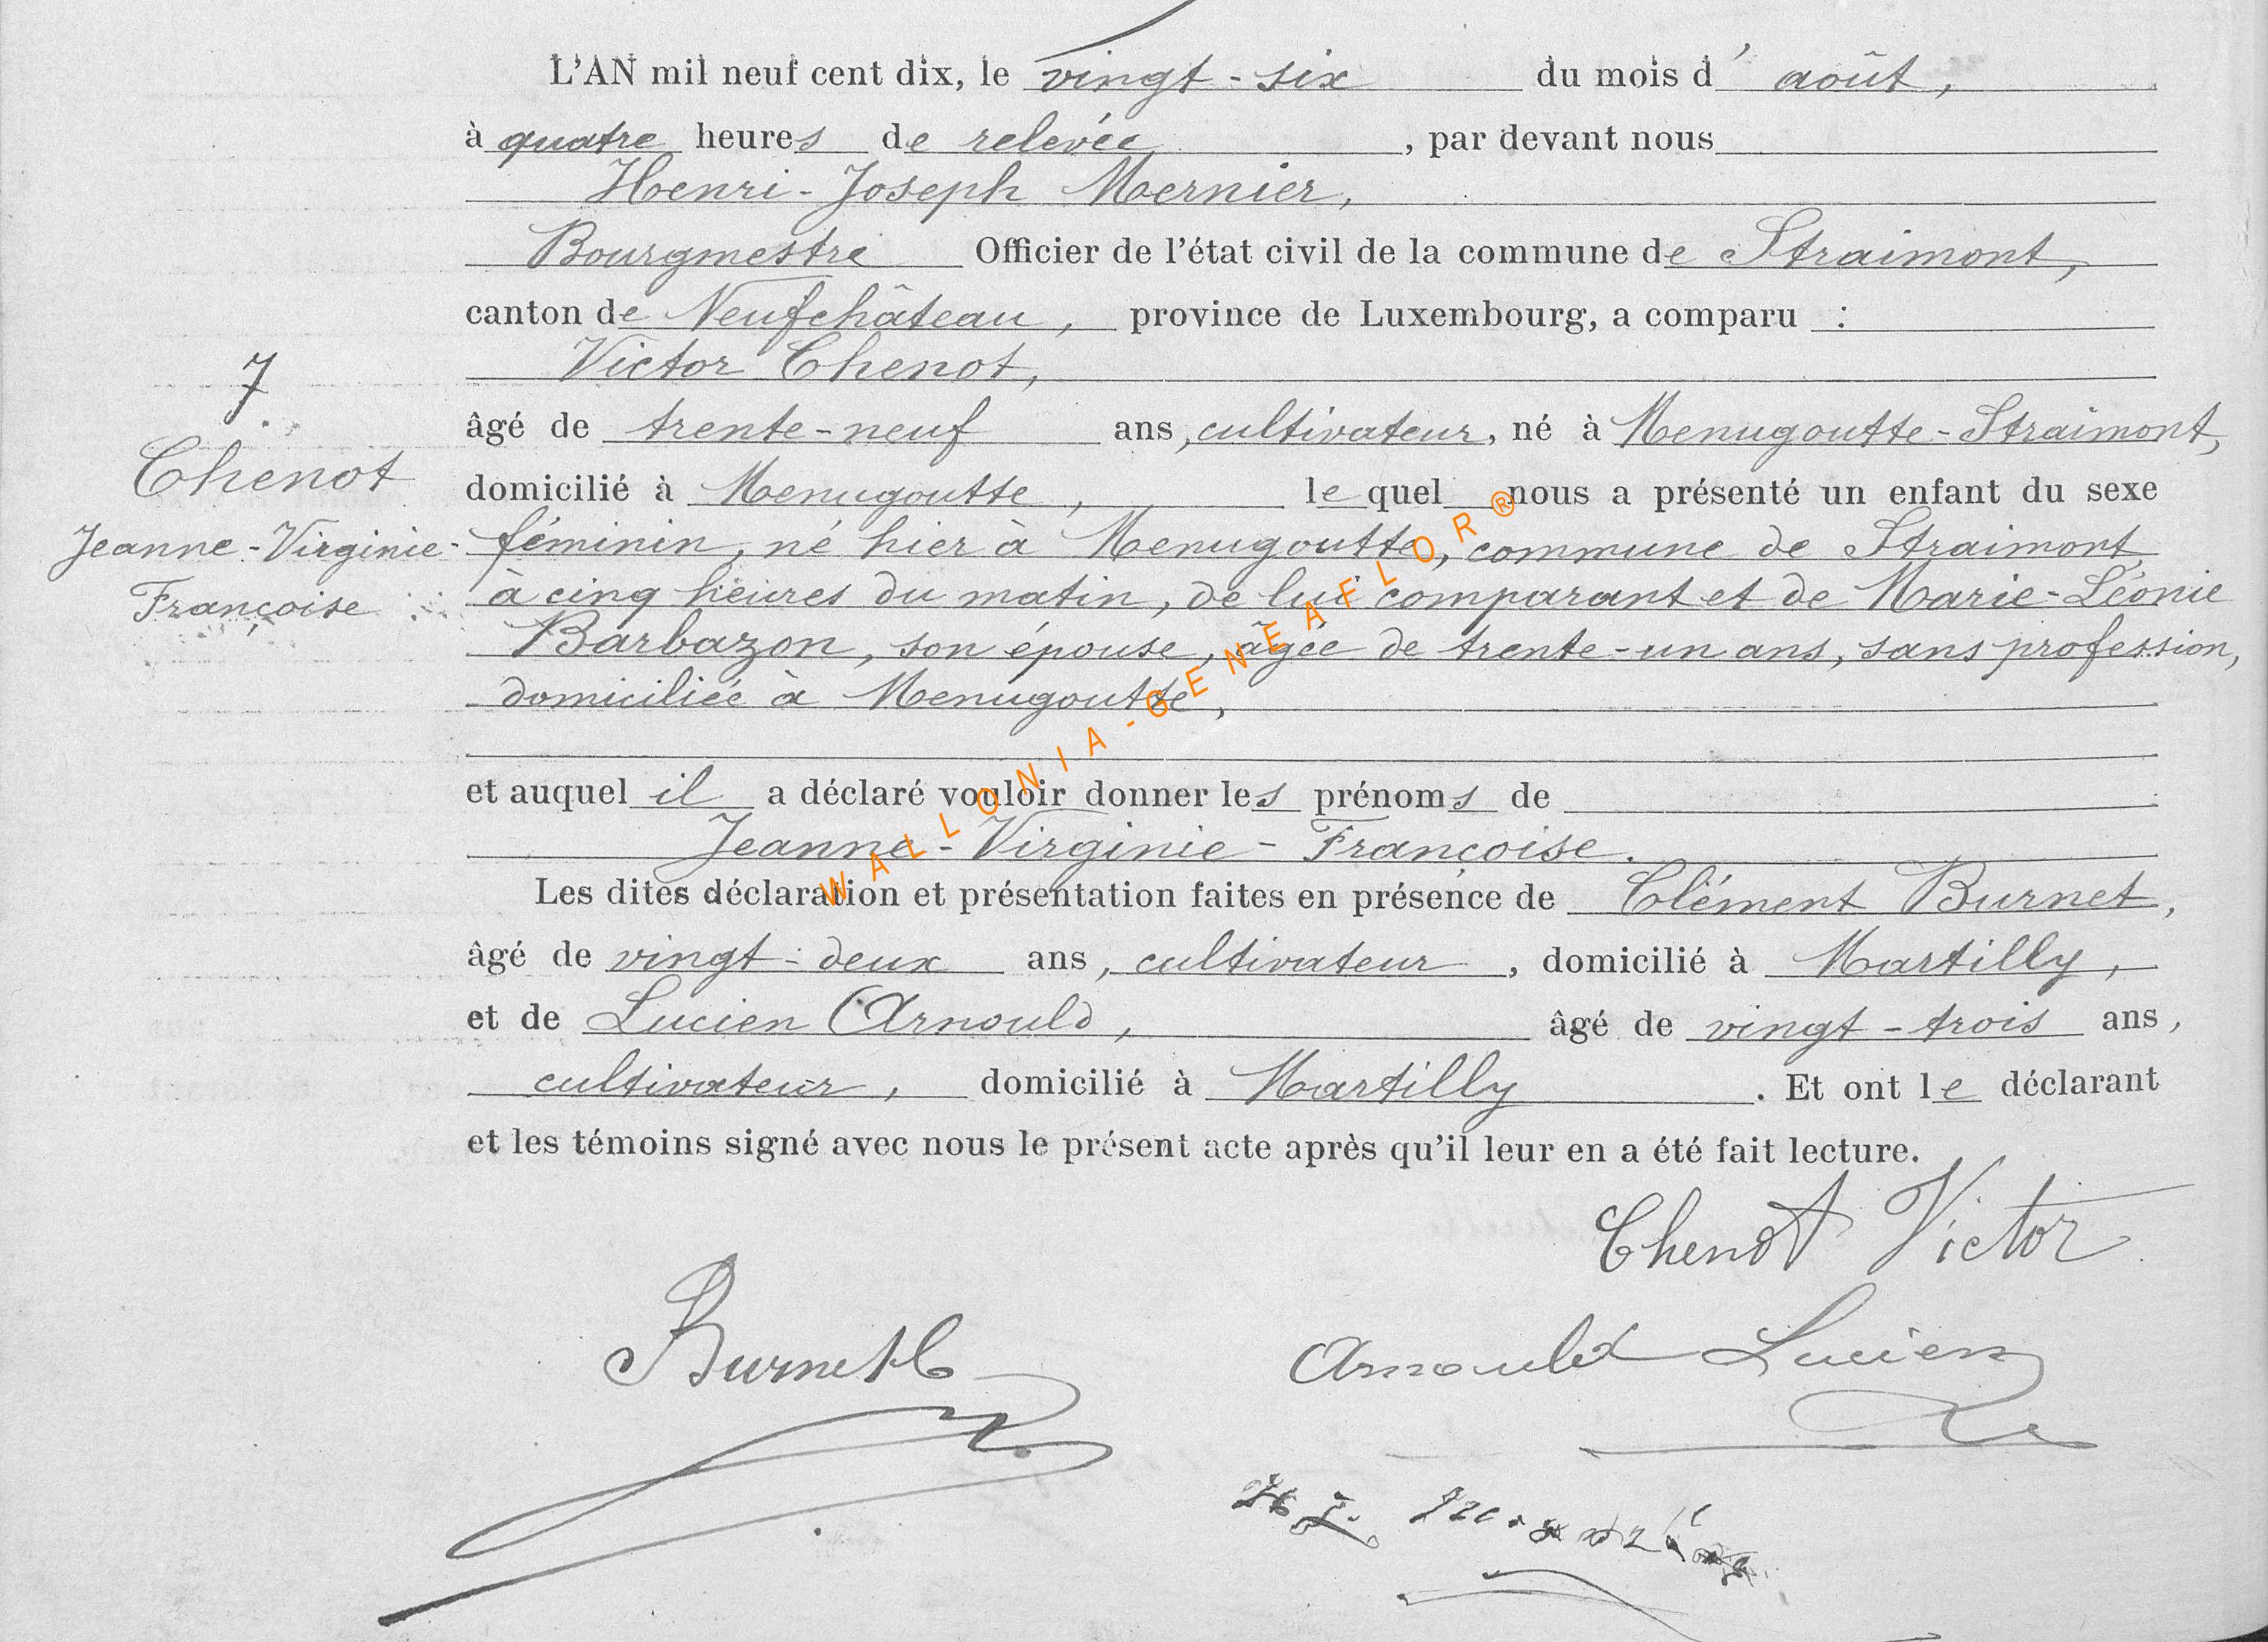 L'AN mil neuf cent dix, le vingt-six du mois d' août,
à quatre heures de relevée, par devant nous
Henri-Joseph Mernier,
Bourgmestre Officier de l'état civil de la commune de Straimont,
canton de Neufchâteau, province de Luxembourg, a comparu :
Victor Chenot,
âgé de trente-neuf ans, cultivateur, né à Menugoutte-Straimont,
domicilié à Menugoutte, le quel nous a présenté un enfant du sexe
féminin, né hier à Menugoutte, commune de Straimont
à cinq heures du matin, de lui comparant et de Marie-Léonie
Barbazon, son épouse, âgée de trente-un ans, sans profession,
domiciliée à Menugoutte,
et auquel il a déclaré vouloir donner les prénoms de
Jeanne-Virginie-Françoise.
Les dites déclaration et présentation faites en présence de Clément Burnet,
âgé de vingt-deux ans, cultivateur, domicilié à Martilly,
et de Lucien Arnould, âgé de vingt-trois ans,
cultivateur, domicilié à Martilly. Et ont le déclarant
et les témoins signé avec nous le présent acte après qu'il leur en a été fait lecture.
7
Chenot
Jeanne-Virginie-
Françoise
Chenot Victor
Burnet C
Arnould Lucien
WALLONIA-GENEAFLOR®